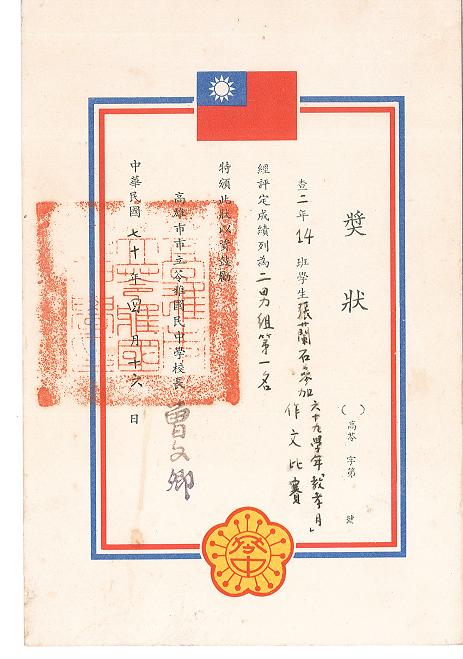 獎狀
( )高苓字第 號
查二年14班學生張蘭石參加六十九學年教孝月」
作文比賽
經評定成績列為二男組第一名
特頒此狀以資鼓勵
高雄市市立苓雅國民中學校長 曾文卿
中華民國七十年四月十六日
苓中